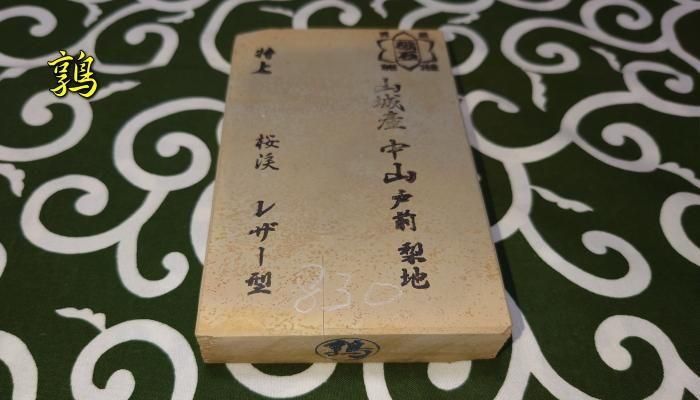 鶉
山城産 中山 戸前 梨地
特上 桜渓 レザー型
830
鶉